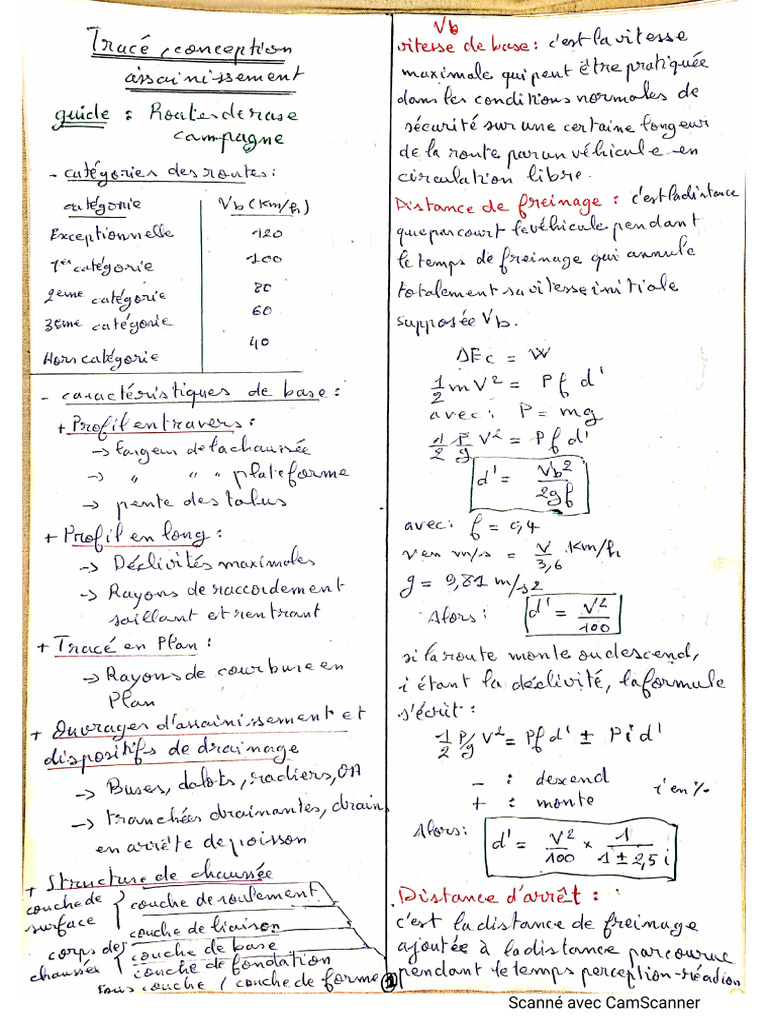 Tracé, conception
assainissement
guide : Routes de rase
campagne
- catégories des routes :
catégorie Vb (Km/h)
Exceptionnelle 120
1ère catégorie 100
2ème catégorie 80
3ème catégorie 60
Hors catégorie 40
- caractéristiques de base :
+ Profil en travers :
→ largeur de la chaussée
→ " " " plateforme
→ pente des talus
+ Profil en long :
→ Déclivités maximales
→ Rayons de raccordement
saillant et rentrant
+ Tracé en Plan :
→ Rayons de courbure en
Plan
+ Ouvrages d'assainissement et
dispositifs de drainage
→ Buses, dalots, radiers, OA
→ tranchées drainantes, drain
en arrête de poisson
+ Structure de chaussée
couche de surface { couche de roulement
couche de liaison
corps des chaussée { couche de base
couche de fondation
sous couche / couche de forme
1
Vb
vitesse de base : c'est la vitesse
maximale qui peut être pratiquée
dans les conditions normales de
sécurité sur une certaine longeur
de la route par un véhicule en
circulation libre.
Distance de freinage : c'est la distance
que parcourt le véhicule pendant
le temps de freinage qui annule
totalement sa vitesse initiale
supposée Vb.
ΔEc = W
1/2 mV² = P f d'
avec : P = mg
1/2 P/g V² = P f d'
d' = Vb²/2gf
avec : f = 0,4
v en m/s = V/3,6 Km/h
g = 9,81 m/s2
Alors : d' = V²/100
si la route monte ou descend,
i étant la déclivité, la formule
s'écrit :
1/2 P/g V² = P f d' ± P i d'
- : descend
+ : monte i en %
Alors : d' = V²/100 × 1/1 ± 2,5 i
Distance d'arrêt :
c'est la distance de freinage
ajoutée à la distance parcourue
pendant le temps perception-réaction
Scanné avec CamScanner